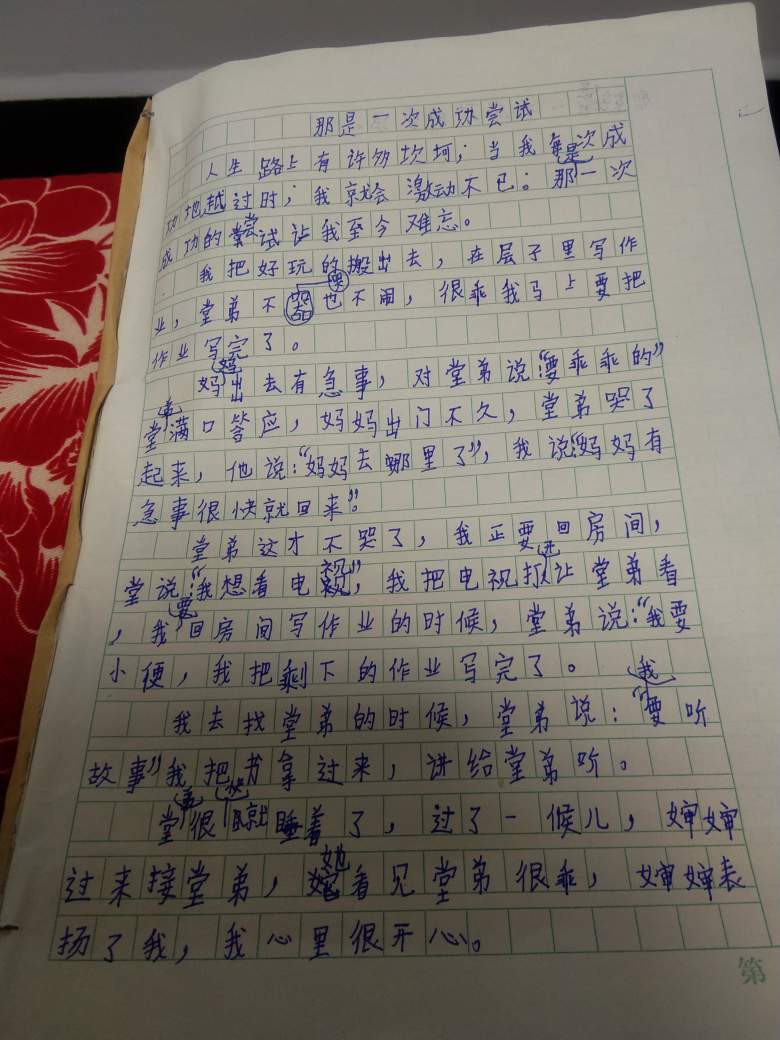 那是一次成功尝试
人生路上有许多坎坷；当我每次成
功地越过时；我就会激动不已。那是一次
成功的尝试让我至今难忘。
我把好玩的搬出去，在层子里写作
业，堂弟不哭也不闹，很乖我马上要把
作业写完了。
妈妈出去有急事，对堂弟说：“要乖乖的”
堂弟满口答应，妈妈出门不久，堂弟哭了
起来，他说：“妈妈去哪里了”，我说：“妈妈有
急事很快就回来”。
堂弟这才不哭了，我正要回房间，
堂说：“我想看电视”，我把电视打开让堂弟看
，我要回房间写作业的时候，堂弟说：“我要
小便，我把剩下的作业写完了。
我去找堂弟的时候，堂弟说：“我要听
故事”我把书拿过来，讲给堂弟听。
堂弟很快就睡着了，过了一候儿，婶婶
过来接堂弟，她看见堂弟很乖，婶婶表
扬了我，我心里很开心。
第